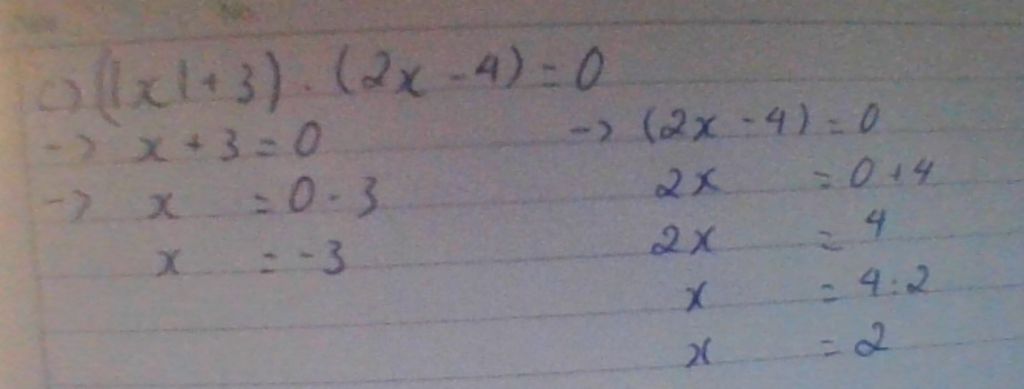 c) (|x|+3) . (2x - 4) = 0
-> x + 3 = 0 -> (2x - 4) = 0
-> x = 0 - 3 2x = 0 + 4
x = -3 2x = 4
x = 4:2
x = 2